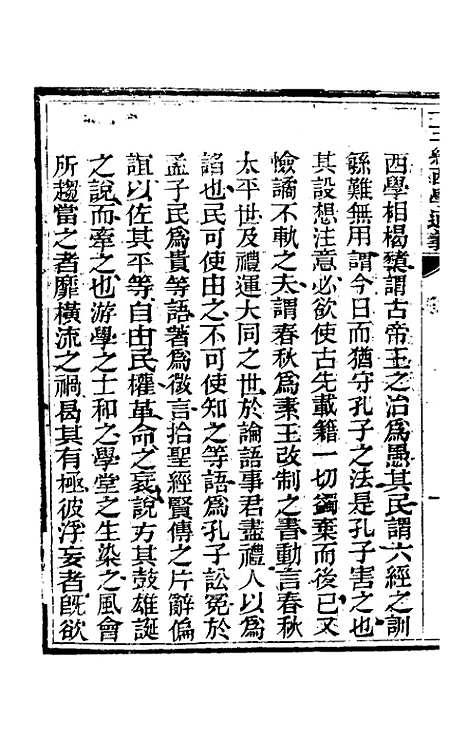 西學相楬櫫謂古帝王之治爲愚其民謂六經之訓
繇難無用謂今日而猶守孔子之法是孔子害之也
其設想注意必欲使古先載籍一切蠲棄而後已又
憸譎不軌之夫謂春秋爲素王改制之書動言春秋
太平世及禮運大同之世於論語事君盡禮人以爲
諂也民可使由之不可使知之等語爲孔子訟冤於
孟子民爲貴等語著爲徵言拾聖經賢傳之片辭偏
誼以佐其平等自由民權革命之衰說方其鼓雄誕
之說而牽之也游學之士和之學堂之生染之風會
所趨當之者靡橫流之禍曷其有極彼浮妄者旣欲
十三經西學通義